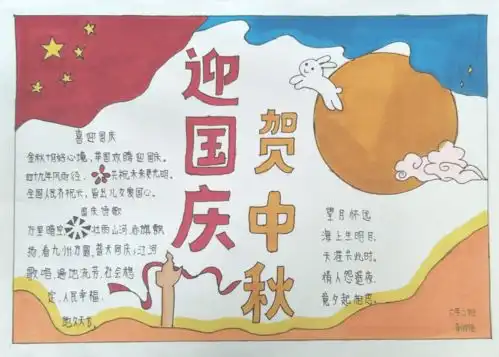 迎国庆
贺中秋
喜迎国庆
金秋十月好心境,举国欢腾迎国庆。
四十九年风雨径,共祝未来更光明。
全国人民齐祝长,皆为儿女爱国心。
国庆诗歌
万里晴空 壮丽山河,赤旗飘
扬,看九州方圆,普天同庆;江河
歌唱,遍地流芳,社会稳
定,人民幸福,
地久天长。
望月怀远
海上生明月,
天涯共此时。
情人怨遥夜,
竟夕起相思。